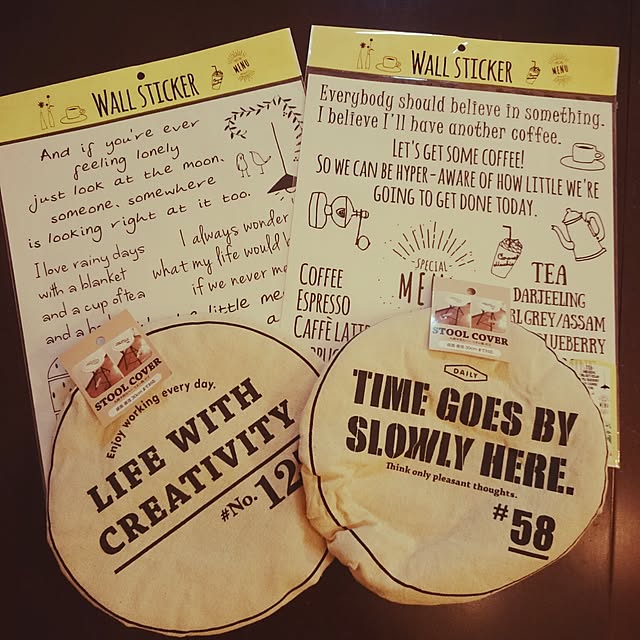 WALL STICKER
And if you're ever
feeling lonely
just look at the moon.
someone, somewhere
is looking right at it too.
I love rainy days
with a blanket
and a cup of tea
and a
I always wonder
what my life would
if we never
little
a
WALL STICKER
MENU
Everybody should believe in something.
I believe I'll have another coffee.
LET'S GET SOME COFFEE!
SO WE CAN BE HYPER-AWARE OF HOW LITTLE WE'RE
GOING TO GET DONE TODAY.
SPECIAL
COFFEE
ESPRESSO
CAFFÈ LATTE
TEA
DARJEELING
RLGREY/ASSAM
LUEBERRY
STOOL COVER
Enjoy working every day.
LIFE WITH
CREATIVITY
#No. 12
STOOL COVER
DAILY
TIME GOES BY
SLOWLY HERE.
Think only pleasant thoughts.
#58